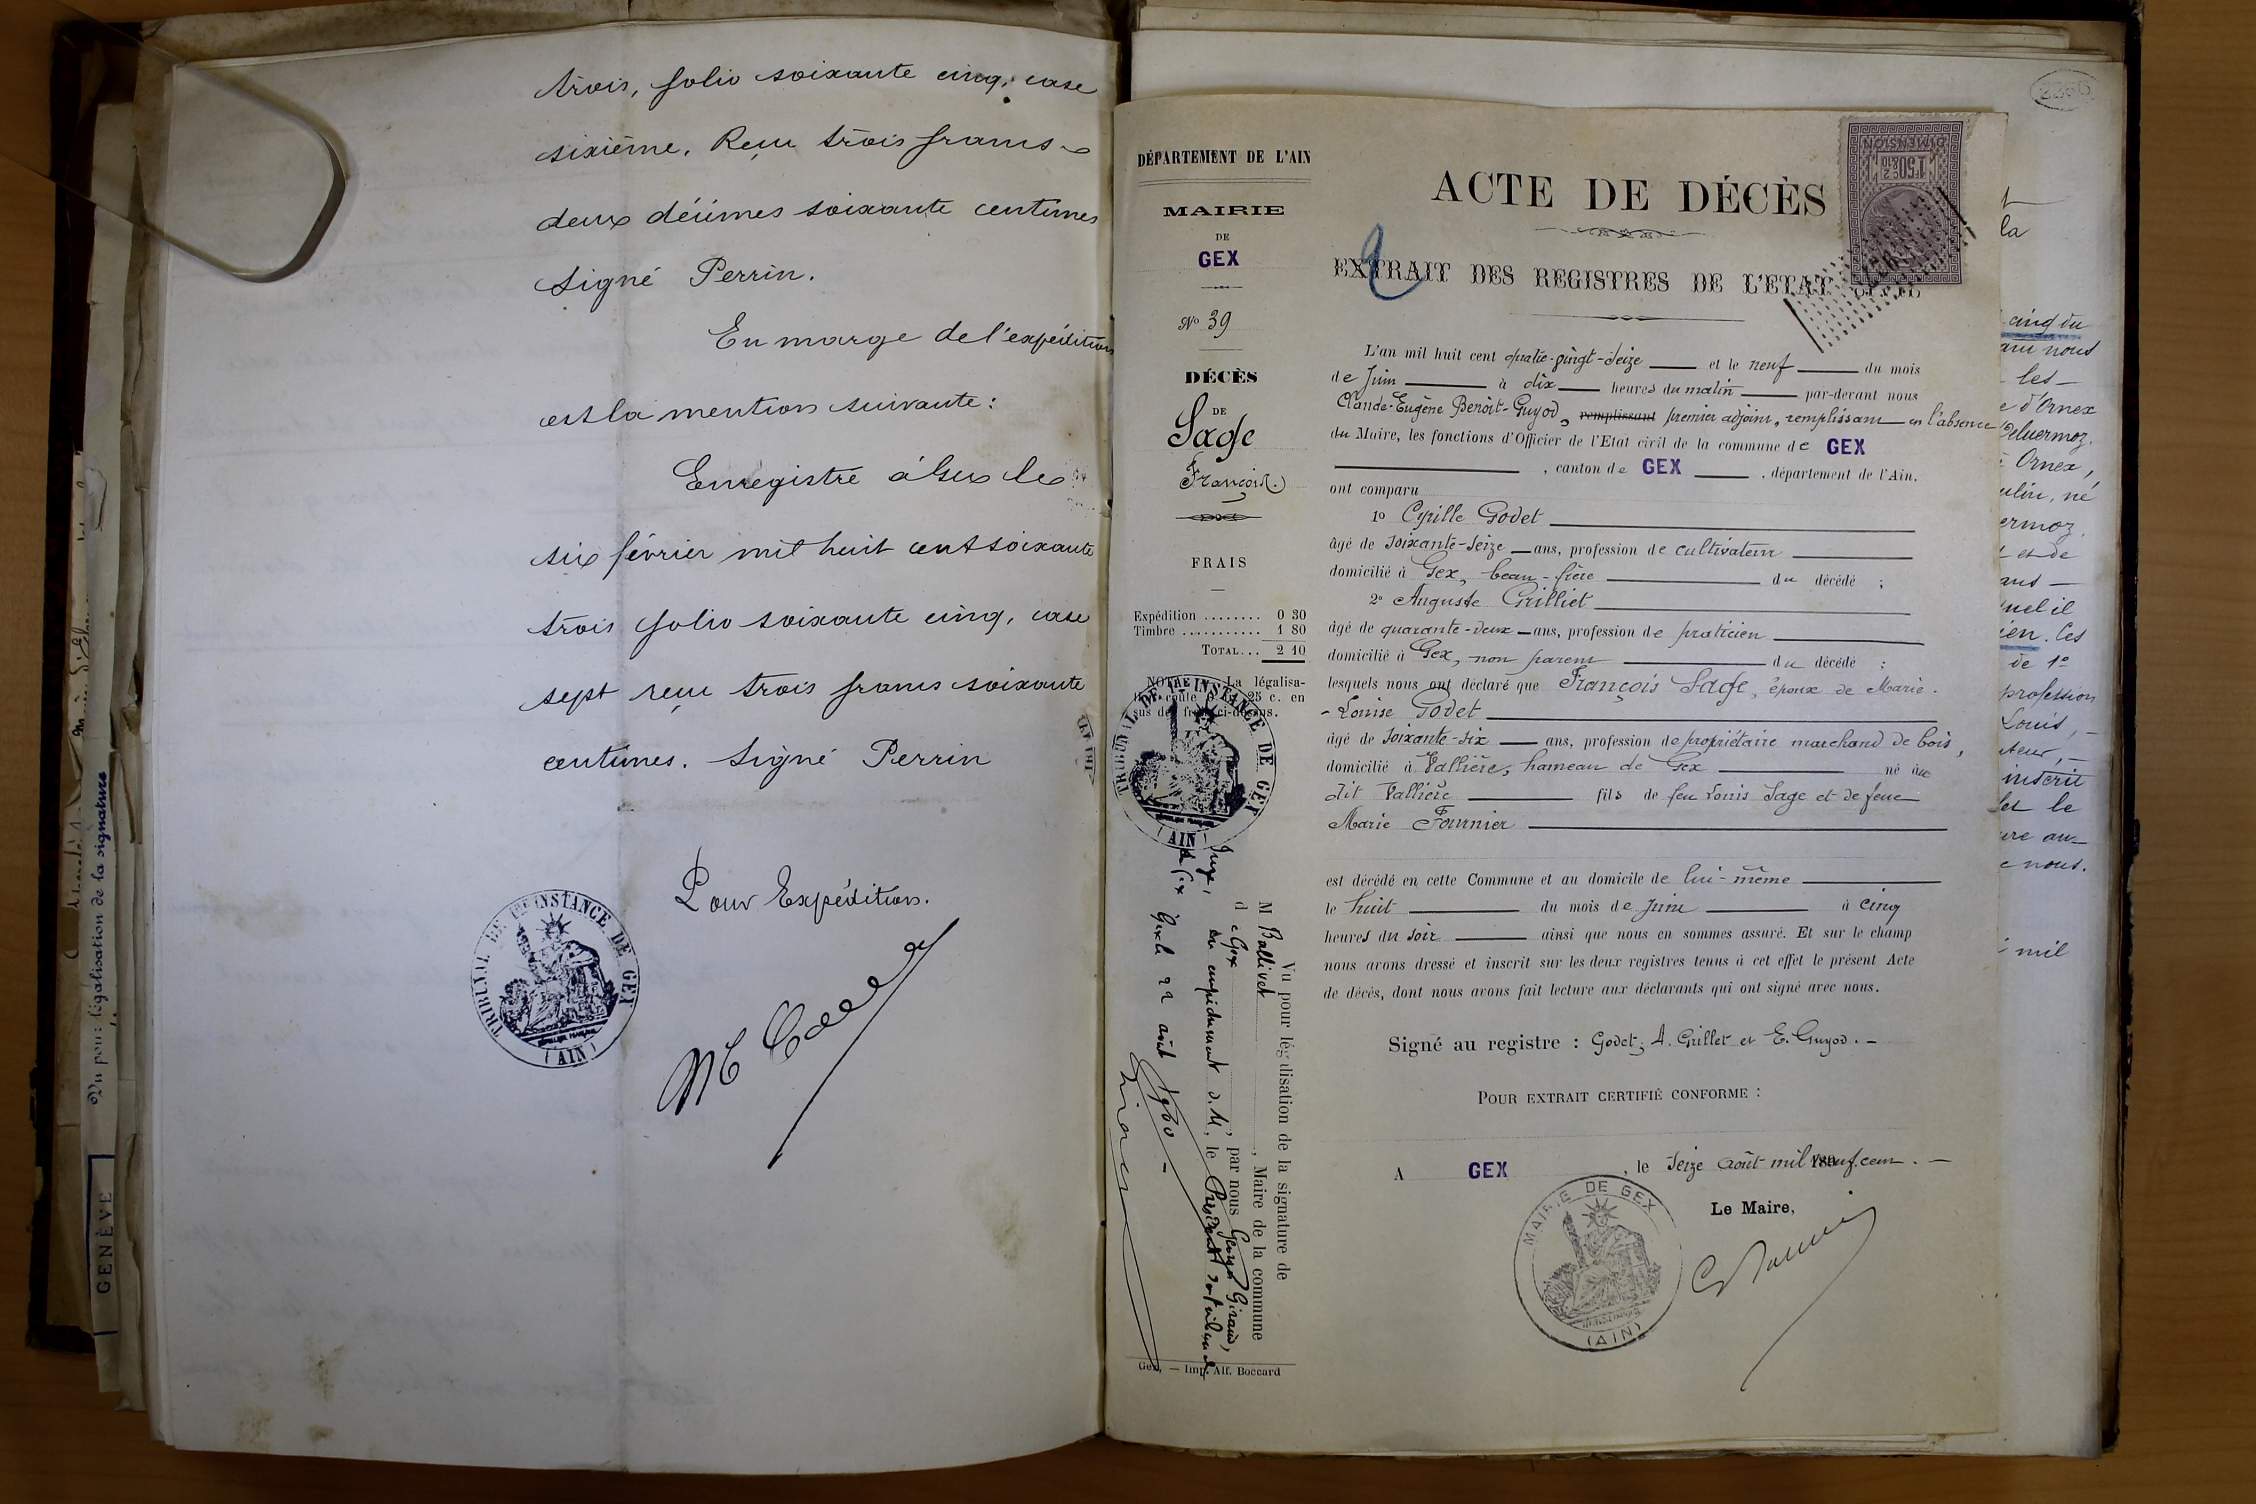 trois, folio soixante cinq, case
sixième. Reçu trois francs
deux décimes soixante centimes
Signé Perrin.
En marge de l'expédition
est la mention suivante:
Enregistré à Gex le
six février mil huit cent soixante
trois folio soixante cinq, case
sept reçu trois francs soixante
centimes. Signé Perrin
Pour Expédition.
TRIBUNAL DE 1re INSTANCE DE GEX
(AIN)
Vu pour légalisation de la signature
GENÈVE
DÉPARTEMENT DE L'AIN
MAIRIE
DE
GEX
No 39
DÉCÈS
DE
Sage
François
FRAIS
Expédition ........ 0 30
Timbre ........... 1 80
TOTAL... 2 10
NOTA La légalisa-
25 c. en
sus des frais ci-dessus.
TRIBUNAL DE 1re INSTANCE DE GEX
(AIN)
Vu pour légalisation de la signature de
M Ballivet, Maire de la commune
de Gex, par nous Georges Giraud,
Juge, en empêchement d. M. le Président
Gex le 22 août 1900
Gex, — Imp. Alf. Boccard
ACTE DE DÉCÈS
EXTRAIT DES REGISTRES DE L'ETAT CIVIL
DIMENSION
1f50c
L'an mil huit cent quatre-vingt-seize et le neuf du mois
de Juin à dix heures du matin par-devant nous
Claude-Eugène Benoît-Guyod, remplissant premier adjoint, remplissant en l'absence
du Maire, les fonctions d'Officier de l'Etat civil de la commune de GEX
, canton de GEX, département de l'Ain.
ont comparu
1o Cyrille Godet
âgé de soixante-seize ans, profession de cultivateur
domicilié à Gex, beau-frère du décédé ;
2o Auguste Grilliet
âgé de quarante-deux ans, profession de praticien
domicilié à Gex, non parent du décédé ;
lesquels nous ont déclaré que François Sage, époux de Marie-
-Louise Godet
âgé de soixante-six ans, profession de propriétaire marchand de bois,
domicilié à Vallière, hameau de Gex né au
dit Vallière fils de feu Louis Sage et de feue
Marie Fournier
est décédé en cette Commune et au domicile de lui-même
le huit du mois de Juin à cinq
heures du soir ainsi que nous en sommes assuré. Et sur le champ
nous avons dressé et inscrit sur les deux registres tenus à cet effet le présent Acte
de décès, dont nous avons fait lecture aux déclarants qui ont signé avec nous.
Signé au registre : Godet; A. Grillet et E. Guyod. -
POUR EXTRAIT CERTIFIÉ CONFORME :
A GEX, le seize août mil neuf cent. -
Le Maire,
MAIRIE DE GEX
(AIN)
la
cinq du
nous
les
d'Ornex
Deluermoz.
Ornex,
né
et de
de 1o
profession
Louis,
inscrit
le
nous.
mil